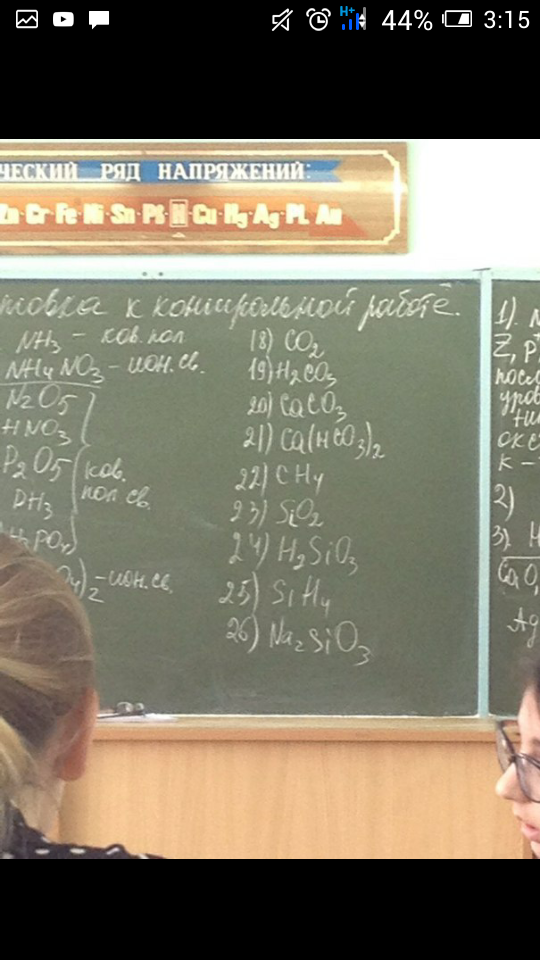 H+
44%
3:15
ЧЕСКИЙ РЯД НАПРЯЖЕНИЙ:
Zn Cr Fe Ni Sn Pb H Cu Hg Ag Pt Au
товка к контрольной работе.
NH3 - ков. пол
NH4NO3 - ион. св.
N2O5
HNO3
P2O5
ков.
пол св.
PH3
H3PO4)
O4)2 - ион. св.
18) CO2
19) H2CO3
20) CaCO3
21) Ca(HCO3)2
22) CH4
23) SiO2
24) H2SiO3
25) SiH4
26) Na2SiO3
1). N
Z, P
посл
уров
окс
к -
2)
3). H
CaO,
Ag